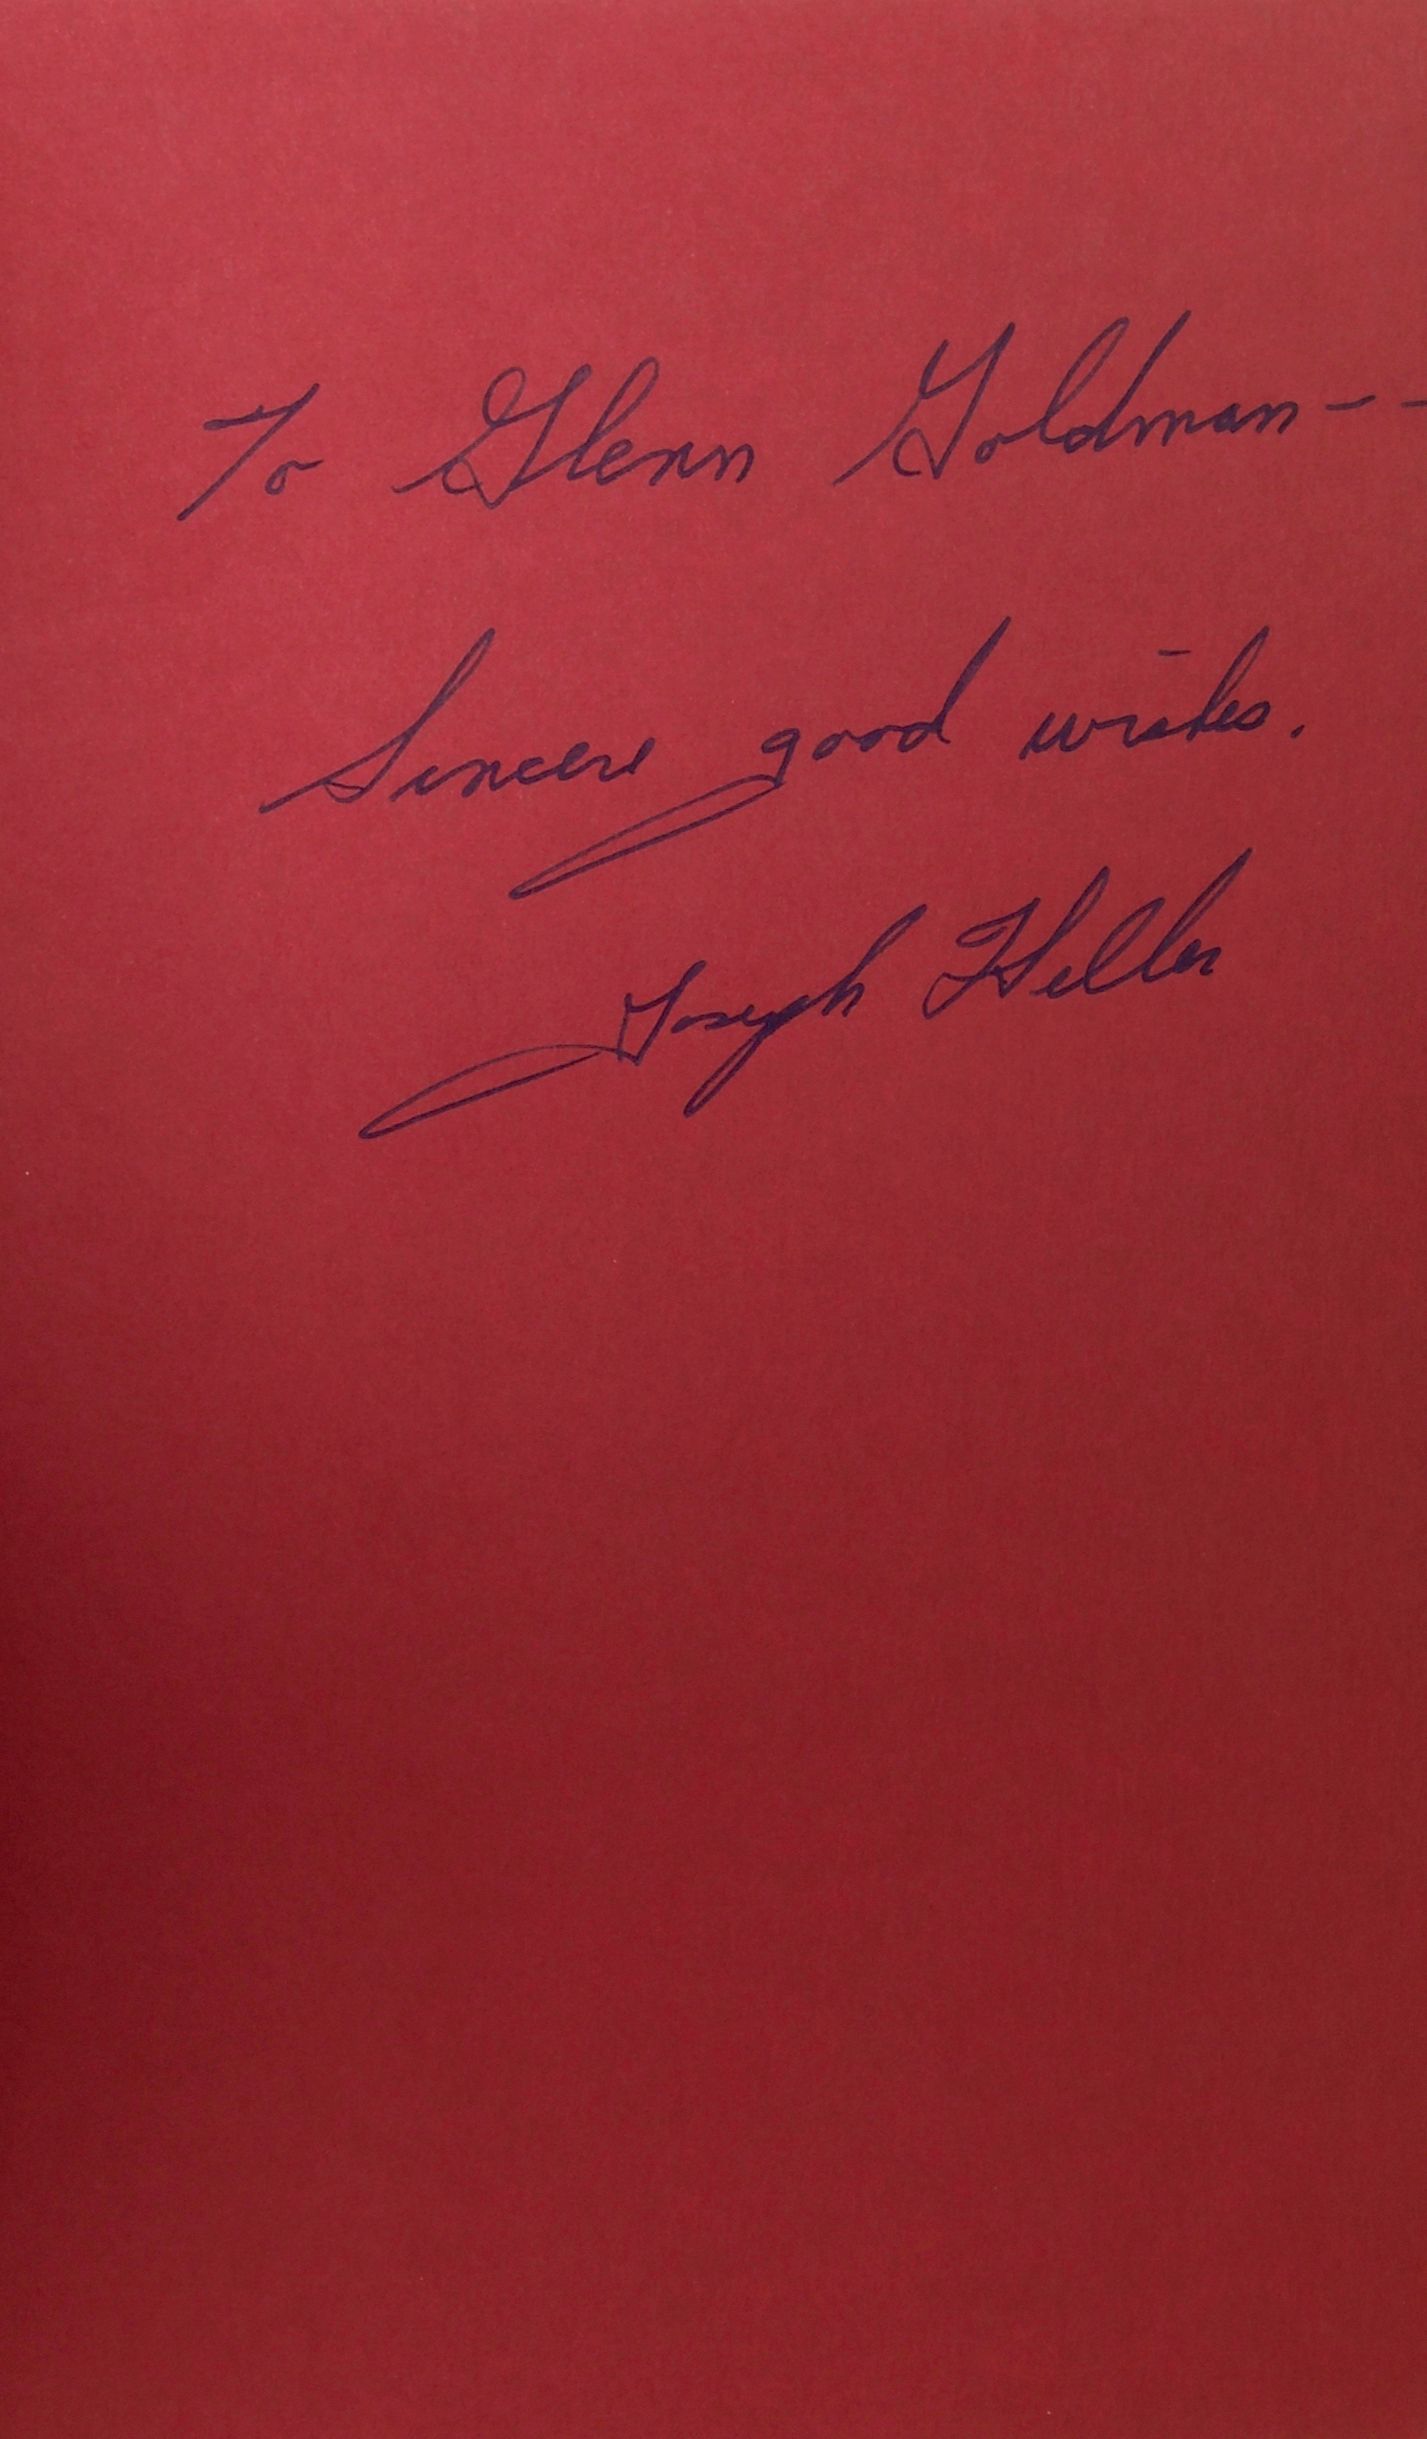 To Glenn Goldman--
Sincere good wishes.
Joseph Heller